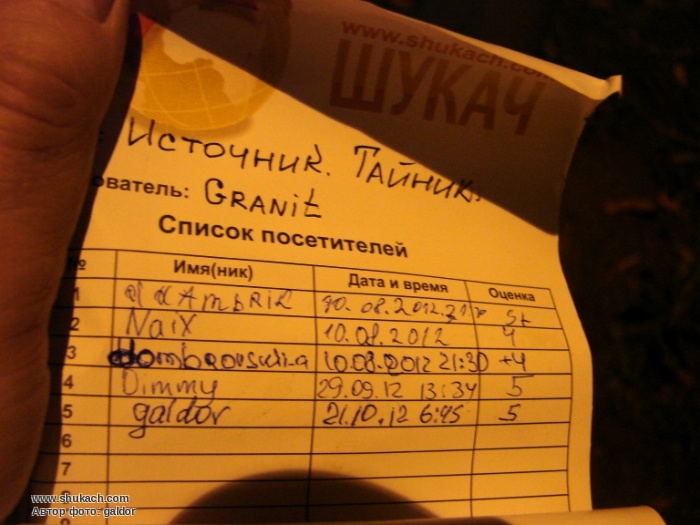 www.shukach.com
ШУКАЧ
Источник. Тайник.
ователь: GRANit
Список посетителей
№ Имя(ник) Дата и время Оценка
1 10.08.2012 5+
2 NaiX 10.08.2012 4
3 10.08.2012 21:30 +4
4 Dimmy 29.09.12 13:34 5
5 galdor 21.10.12 6:45 5
6
7
8
www.shukach.com
Автор фото: galdor